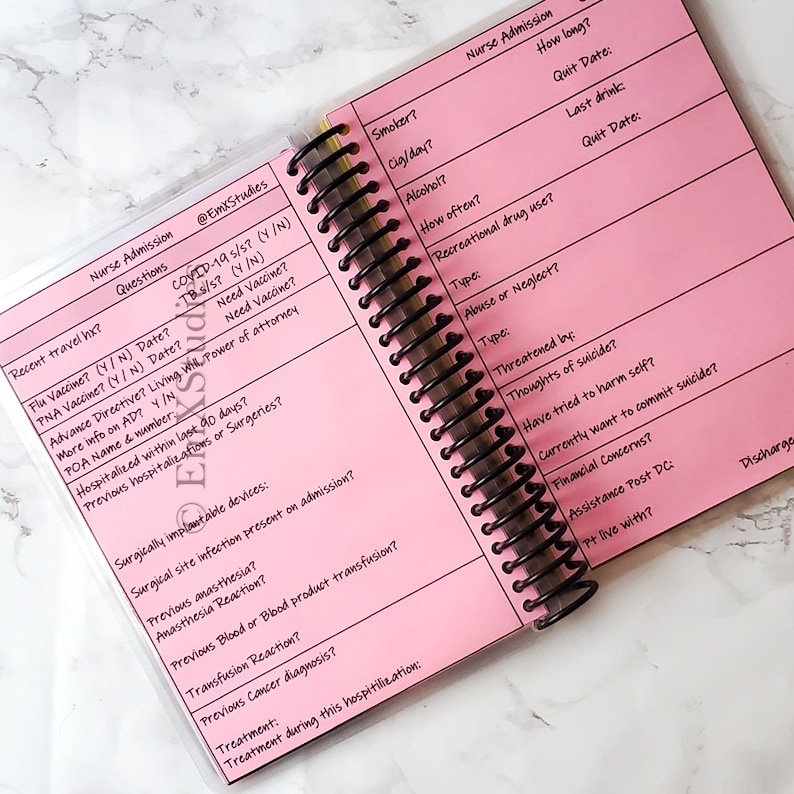 Nurse Admission @EmXStudies
Questions
Recent travel hx? COVID-19 s/s? (Y / N)
TB s/s? (Y / N)
Flu Vaccine? (Y / N) Date? Need Vaccine?
PNA Vaccine? (Y / N) Date? Need Vaccine?
Advance Directive? Living Will Power of attorney
More info on AD? Y / N
POA Name & number
Hospitalized within last 90 days?
Previous hospitalizations or Surgeries?
Surgically implantable devices:
Surgical site infection present on admission?
Previous anasthesia?
Anasthesia Reaction?
Previous Blood or Blood product transfusion?
Transfusion Reaction?
Previous Cancer diagnosis?
Treatment:
Treatment during this hospitilization:
© EmXStudies
Nurse Admission
Smoker? How long?
Cig/day? Quit Date:
Alcohol? Last drink:
How often? Quit Date:
Recreational drug use?
Type:
Abuse or Neglect?
Type:
Threatened by:
Thoughts of suicide?
Have tried to harm self?
Currently want to commit suicide?
Financial Concerns?
Assistance Post DC:
Pt live with? Discharge